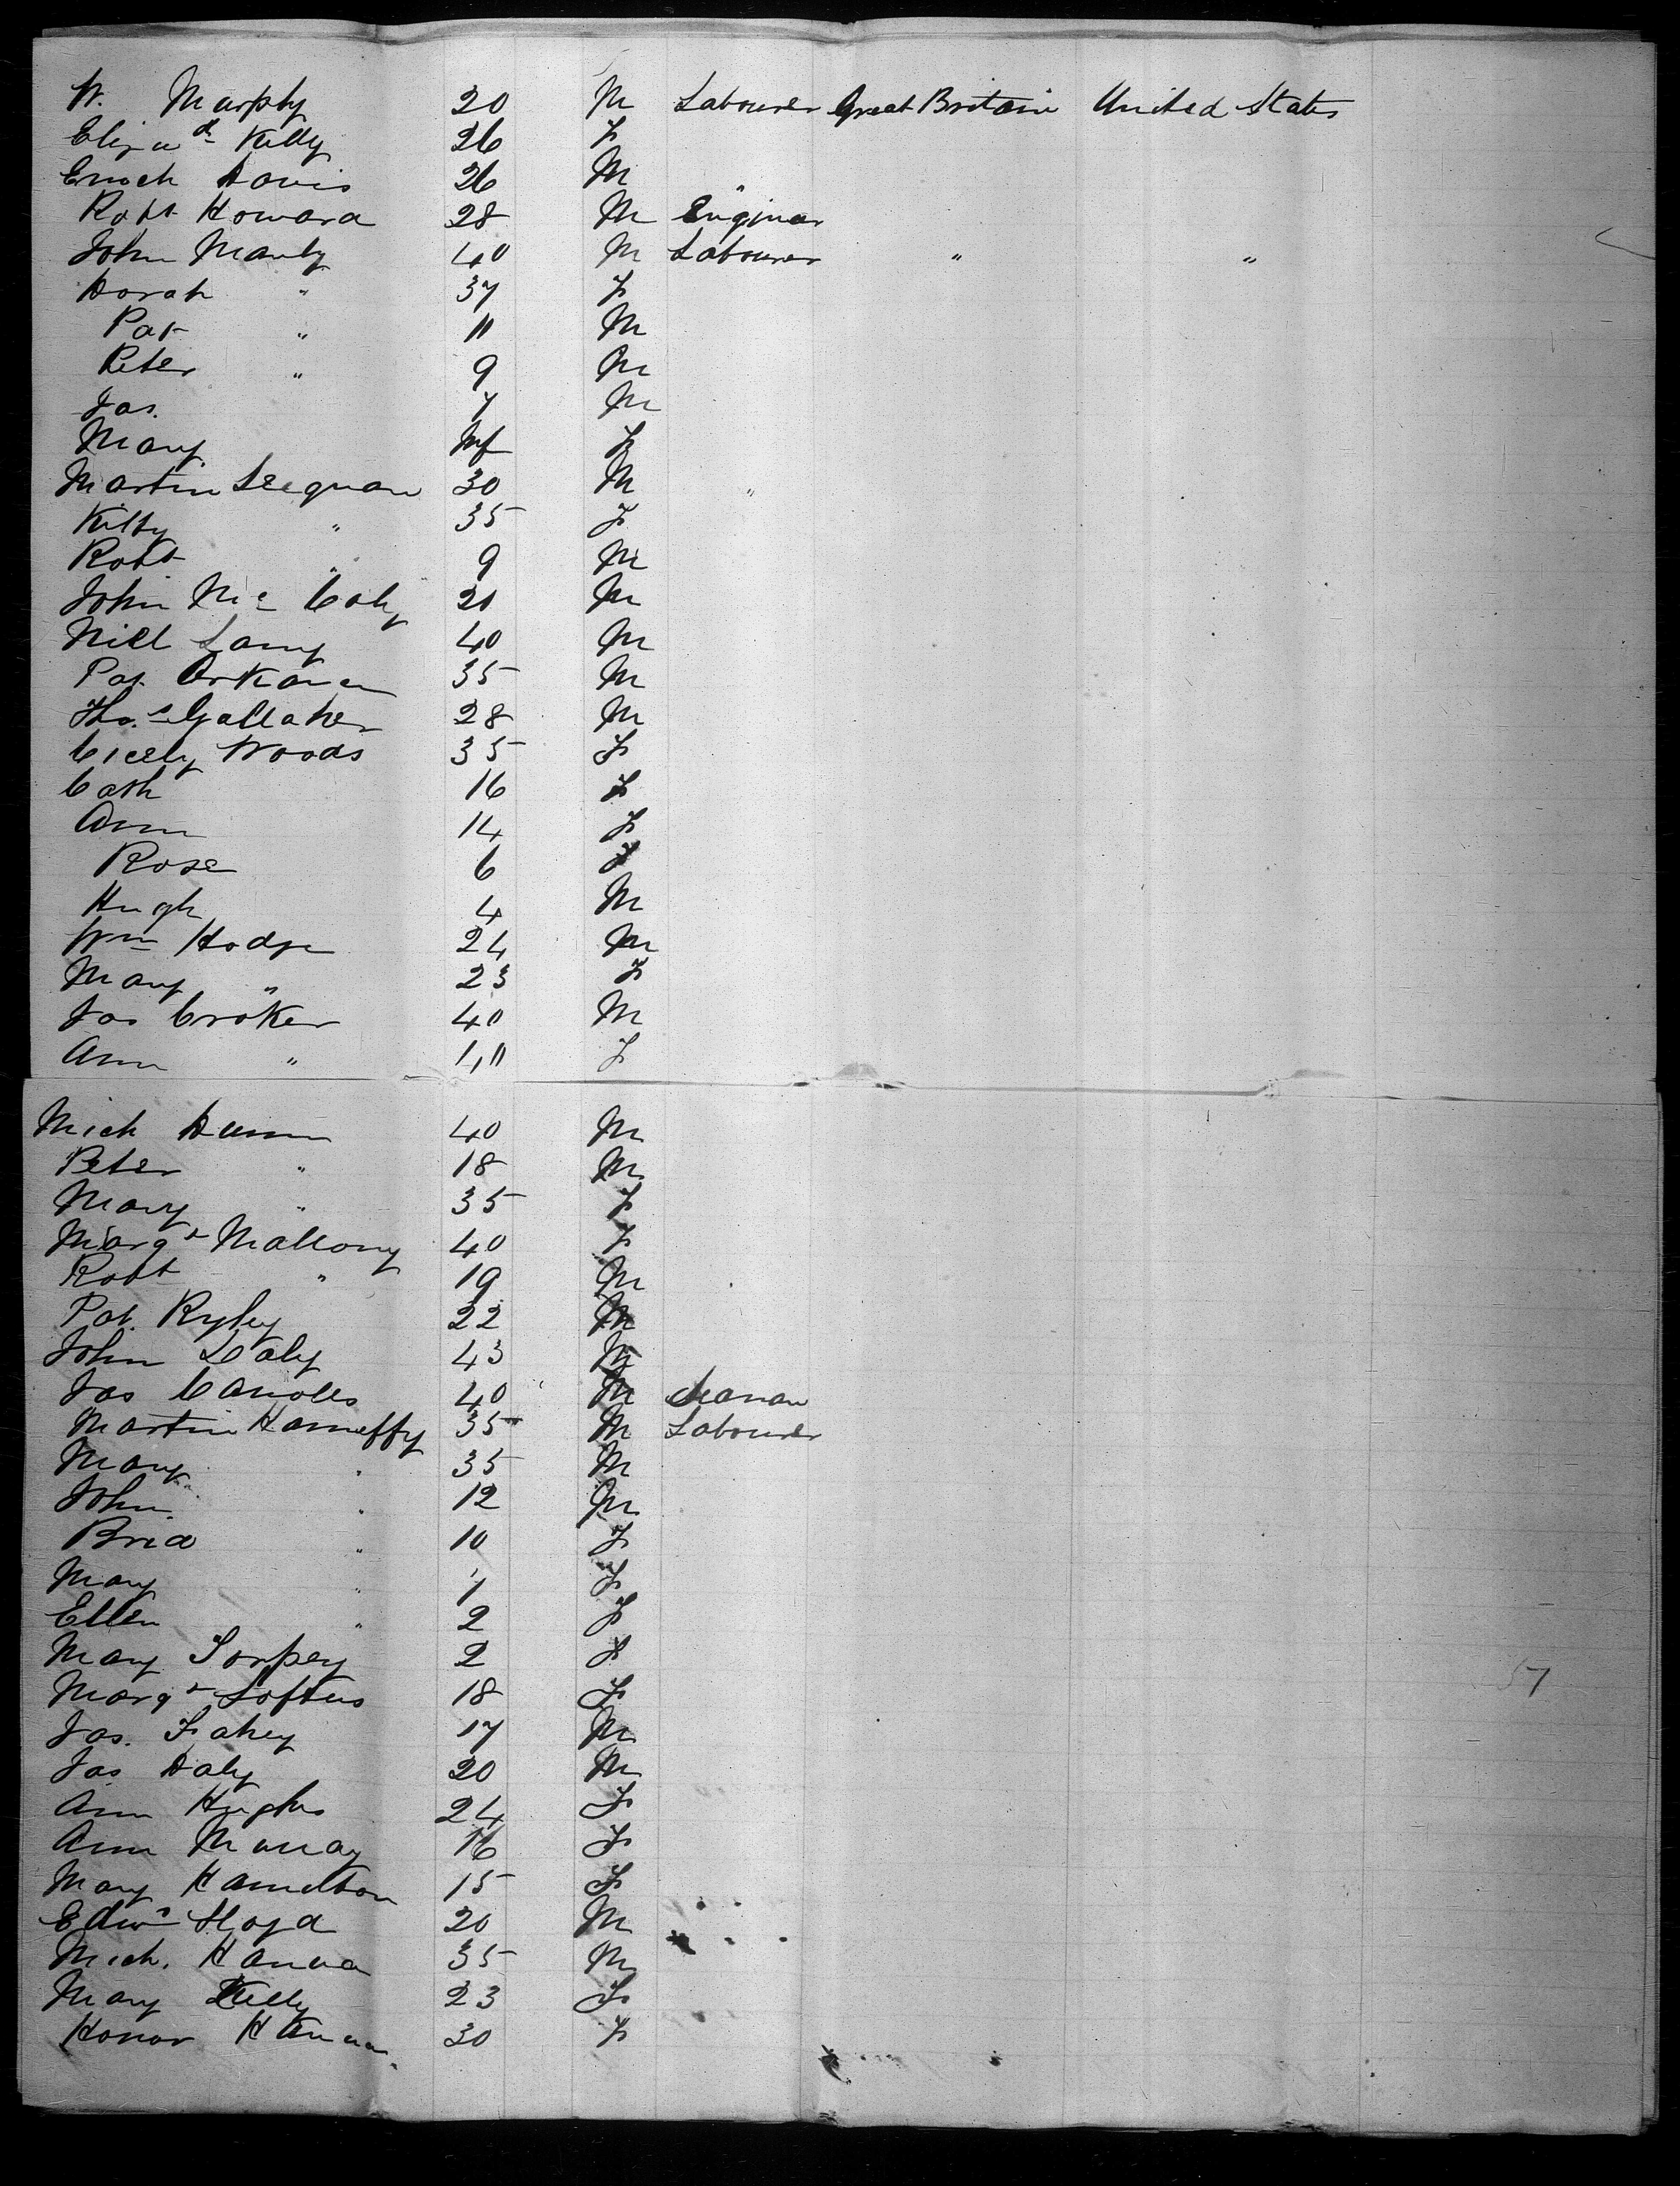 W. Murphy 20 M Labourer Great Britain United States
Elizath Kelly 26 F
Enoch Davis 26 M
Robt Howard 28 M Enginer
John Manly 40 M Labourer " "
Dorah " 37 F
Pat " 11 M
Peter " 9 M
Jas. 7 M
Mary Inf F
Martin Seequan 30 M "
Kitty " 35 F
Robt " 9 M
John Mc Coly 20 M
Niel Lamy 40 M
Pat 35 M
Thos Gallaher 28 M
Cicely Woods 35 F
Cath 16 F
Ann 14 F
Rose 6 F
Hugh 4 M
Wm Hodge 24 M
Mary " 23 F
Jas Croker 40 M
Ann " 40 F
Mich Dunn 40 M
Peter " 18 M
Mary " 35 F
Margt Mallony 40 F
Robt " 19 M
Pat. Ryley 22 M
John Daly 43 M
Jas 40 M Seaman
Martin Hanneffy 35 M Labourer
Mary " 35 M
John " 12 M
Brid " 10 F
Mary " 7 F
Ellen " 2 F
Mary Torpey 2 F
Margt Loftus 18 F
Jas. Fahey 17 M
Jas Daly 20 M
Ann Hughes 24 F
Ann Murray 16 F
Mary Hamelton 15 F
Edwd 20 M
Mich. Hanna 35 M
Mary Kelly 23 F
Honor Hanna 30 F